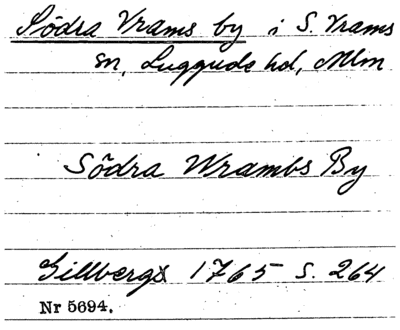 Södra Vrams by i S. Vrams
sn, Luggude hd, Mlm
Södra Wrambs By
Gillbergs 1765 s. 264
Nr 5694.